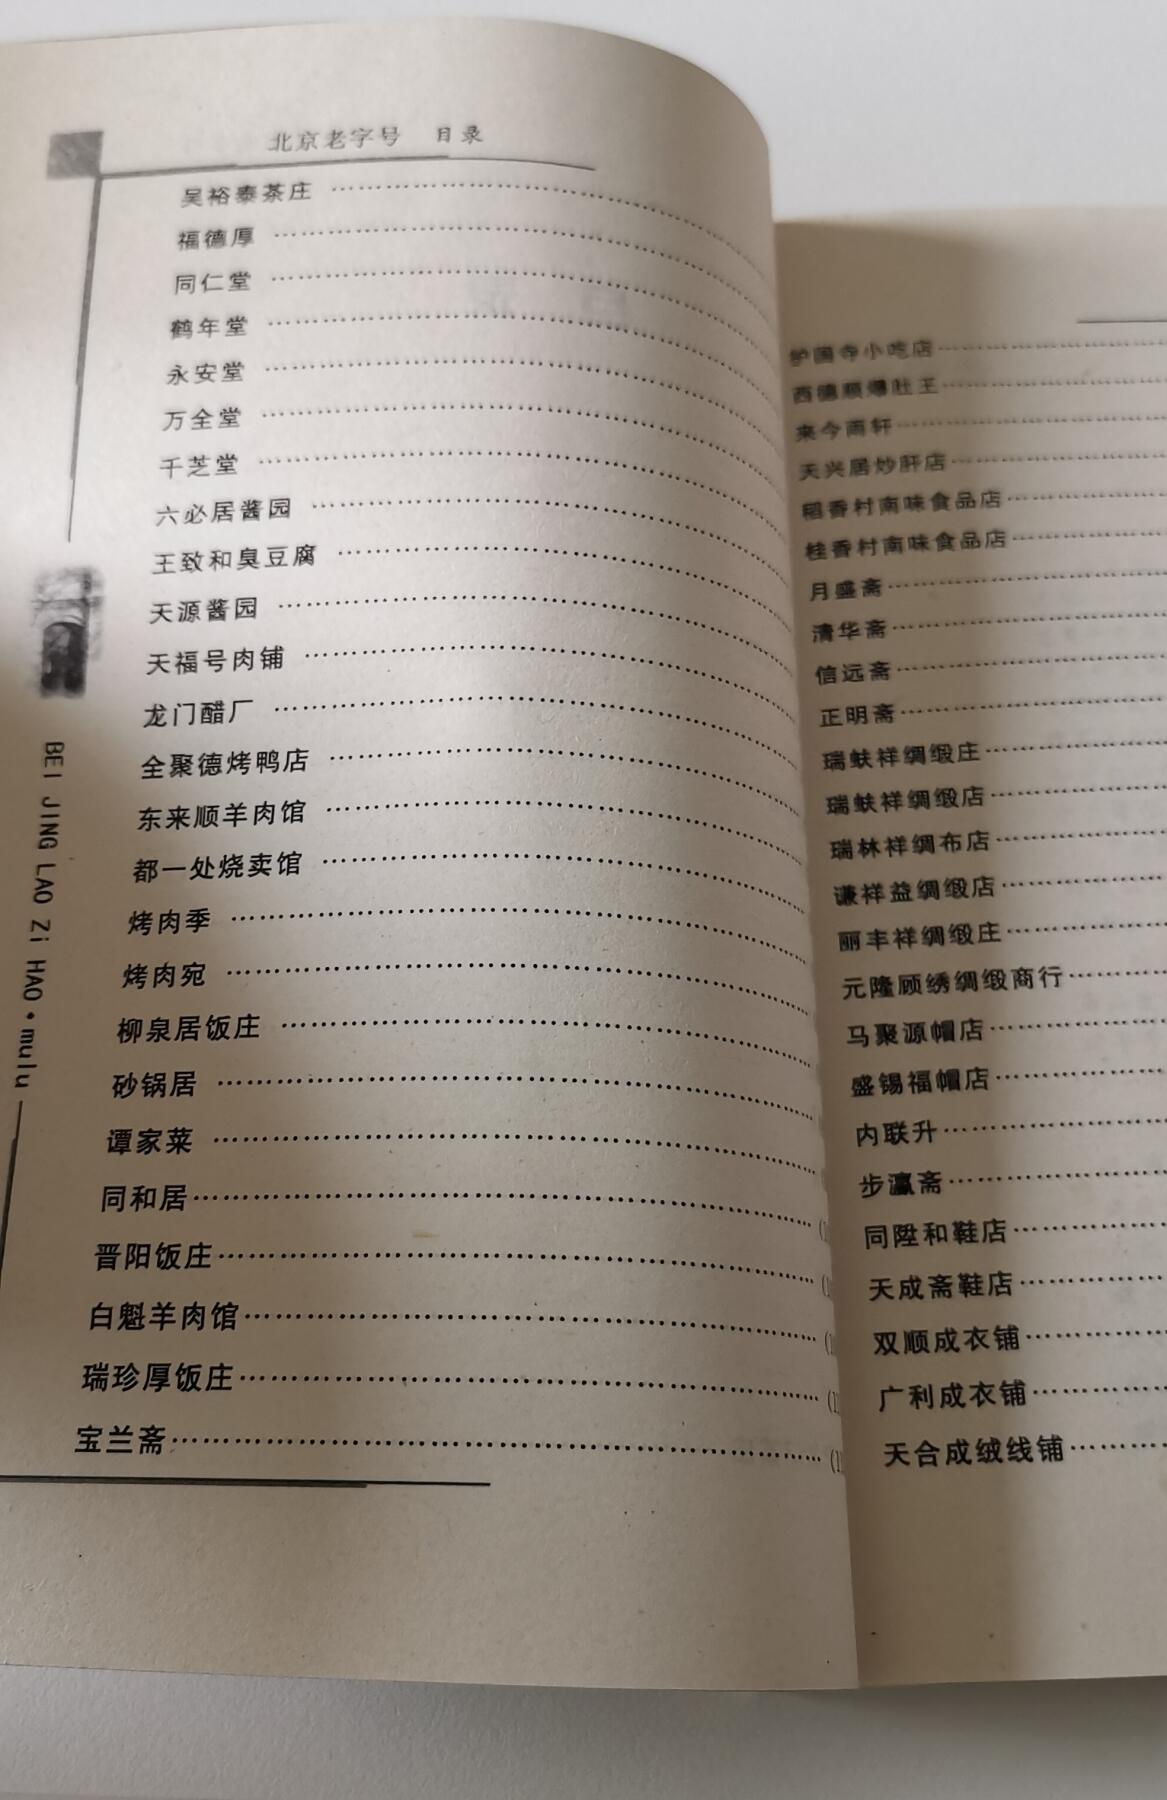 北京老字号 目录
吴裕泰茶庄
福德厚
同仁堂
鹤年堂
永安堂
万全堂
千芝堂
六必居酱园
王致和臭豆腐
天源酱园
天福号肉铺
龙门醋厂
全聚德烤鸭店
东来顺羊肉馆
都一处烧卖馆
烤肉季
烤肉宛
柳泉居饭庄
砂锅居
谭家菜
同和居
晋阳饭庄
白魁羊肉馆
瑞珍厚饭庄
宝兰斋
BEI JING LAO Zi HAO·mulu
护国寺小吃店
西德顺爆肚王
来今雨轩
天兴居炒肝店
稻香村南味食品店
桂香村南味食品店
月盛斋
清华斋
信远斋
正明斋
瑞蚨祥绸缎庄
瑞蚨祥绸缎店
瑞林祥绸布店
谦祥益绸缎店
丽丰祥绸缎庄
元隆顾绣绸缎商行
马聚源帽店
盛锡福帽店
内联升
步瀛斋
同陞和鞋店
天成斋鞋店
双顺成衣铺
广利成衣铺
天合成绒线铺